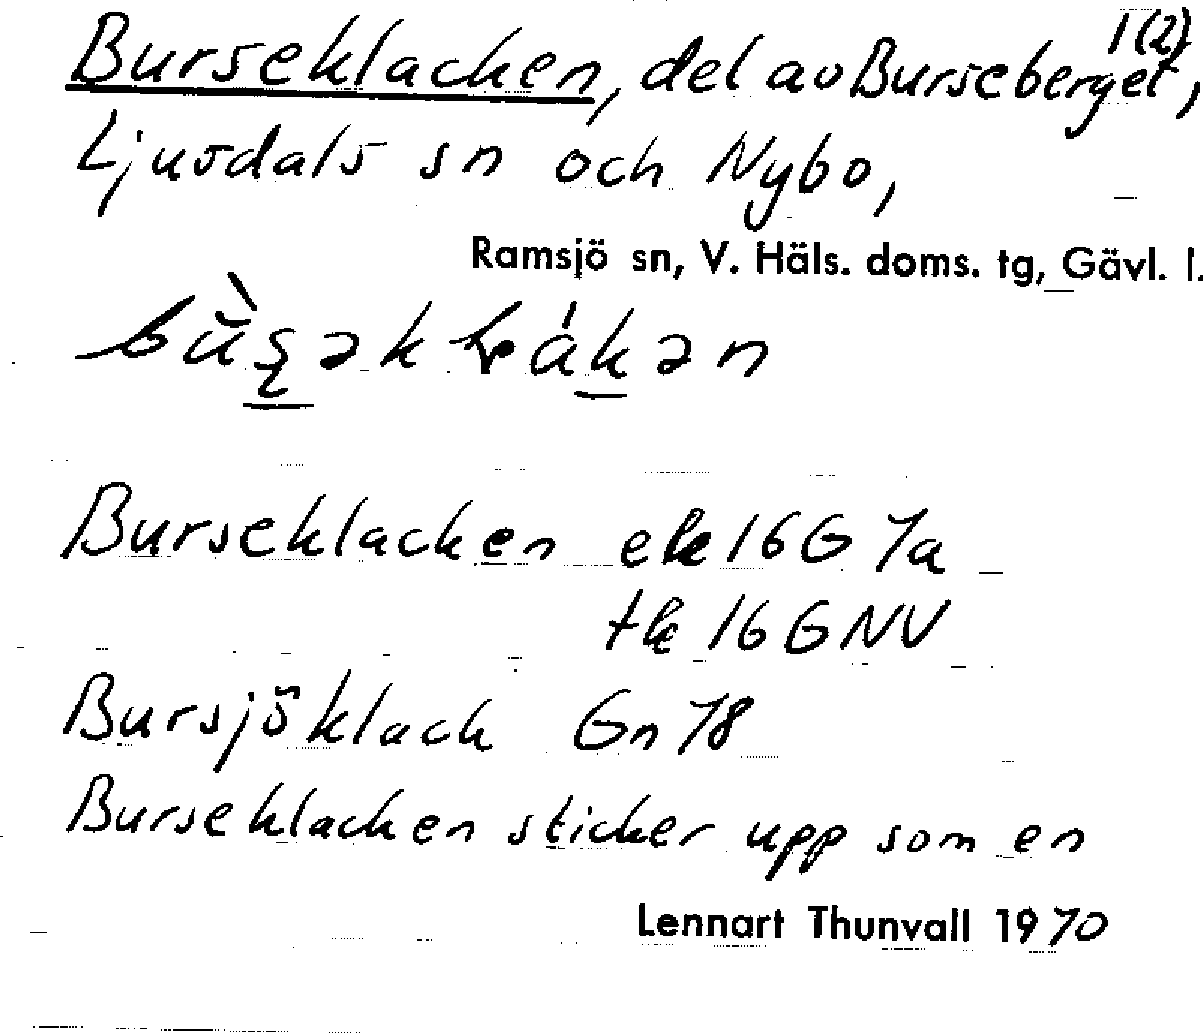 1(2)
Burseklacken, del av Burseberget,
Ljusdals sn och Nybo,
Ramsjö sn, V. Häls. doms. tg, Gävl. l.
Burseklacken ek 16G 7a
tk 16G NV
Bursjöklack Gn 78
Burseklacken sticker upp som en
Lennart Thunvall 1970